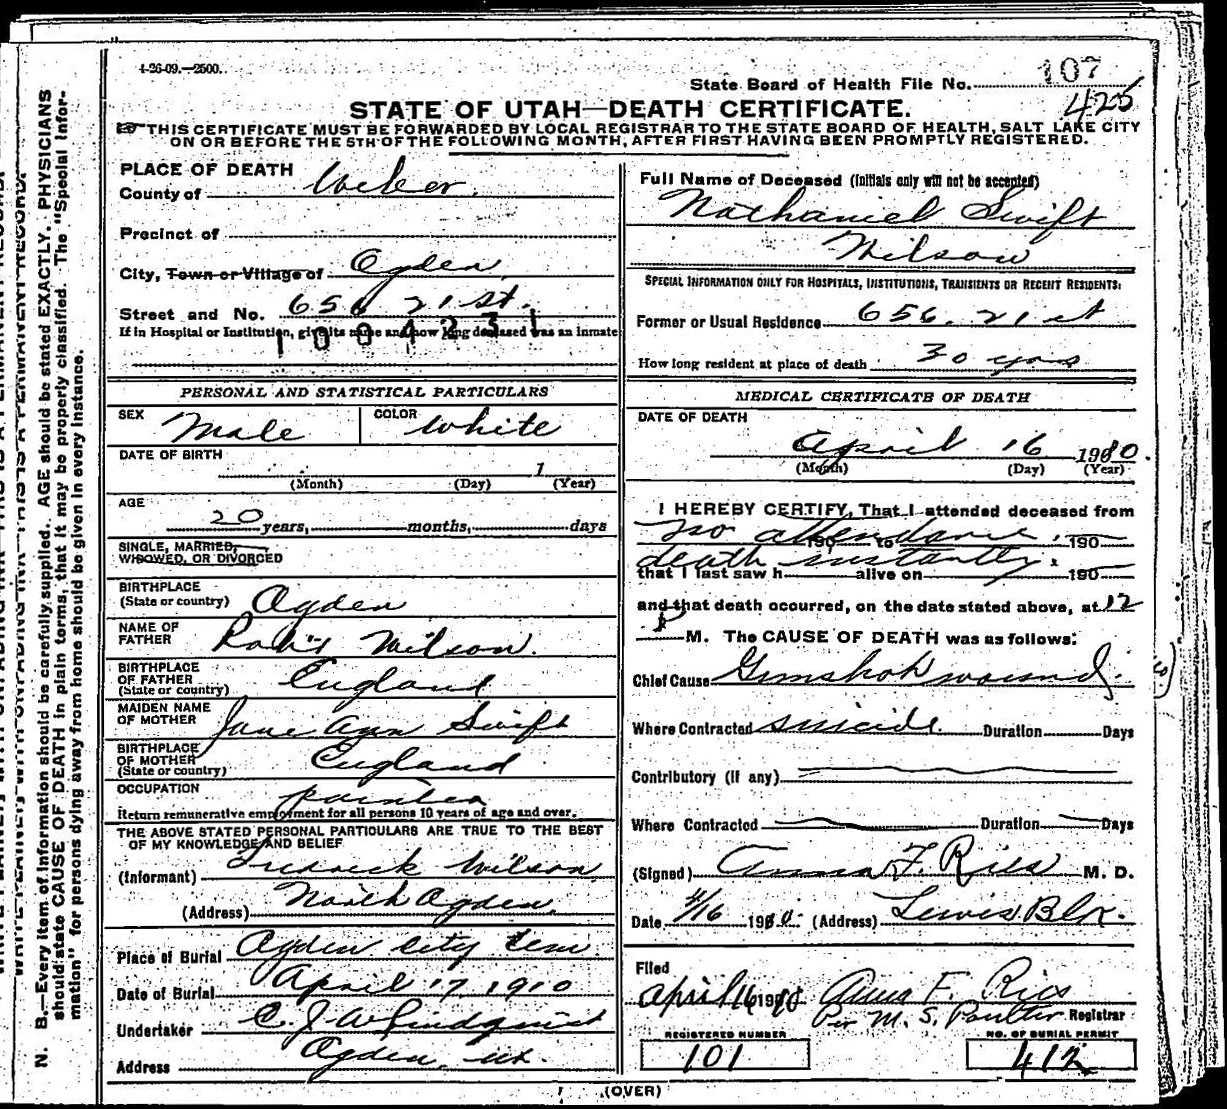 4-26-09.—2500.
State Board of Health File No. 107
425
STATE OF UTAH—DEATH CERTIFICATE.
THIS CERTIFICATE MUST BE FORWARDED BY LOCAL REGISTRAR TO THE STATE BOARD OF HEALTH, SALT LAKE CITY
ON OR BEFORE THE 5TH OF THE FOLLOWING MONTH, AFTER FIRST HAVING BEEN PROMPTLY REGISTERED.
PLACE OF DEATH
County of Weber
Precinct of
City, Town or Village of Ogden
Street and No. 656 21 st.
If in Hospital or Institution, give its name and how long deceased was an inmate
1004231
Full Name of Deceased (Initials only will not be accepted)
Nathaniel Swift
Wilson
SPECIAL INFORMATION ONLY FOR HOSPITALS, INSTITUTIONS, TRANSIENTS OR RECENT RESIDENTS:
Former or Usual Residence 656. 21 st
How long resident at place of death 30 yrs
PERSONAL AND STATISTICAL PARTICULARS
SEX Male
COLOR White
DATE OF BIRTH
1
(Month) (Day) (Year)
AGE
20 years, months, days
SINGLE, MARRIED,
WIDOWED, OR DIVORCED
BIRTHPLACE
(State or country) Ogden
NAME OF
FATHER Robt Wilson.
BIRTHPLACE
OF FATHER
(State or country) England
MAIDEN NAME
OF MOTHER Jane Ann Swift
BIRTHPLACE
OF MOTHER
(State or country) England
OCCUPATION painter
Return remunerative employment for all persons 10 years of age and over.
THE ABOVE STATED PERSONAL PARTICULARS ARE TRUE TO THE BEST
OF MY KNOWLEDGE AND BELIEF
(Informant) Fredrick Wilson
(Address) North Ogden.
Place of Burial Ogden City Cem
Date of Burial April 17, 1910
Undertaker C. J. A. Lindquist
Address Ogden, Ut.
MEDICAL CERTIFICATE OF DEATH
DATE OF DEATH
April 16 1910.
(Month) (Day) (Year)
I HEREBY CERTIFY, That I attended deceased from
no attendance.
190 to 190
death instantly.
that I last saw h alive on 190
and that death occurred, on the date stated above, at 12
P M. The CAUSE OF DEATH was as follows:
Chief Cause Gunshot wound
Where Contracted suicide. Duration Days
Contributory (if any)
Where Contracted Duration Days
(Signed) Anna F. Ries M. D.
Date 4/16 1910. (Address) Lewis Blk.
Filed
April 16 1910 Anna F. Ries
Per M. S. Poulter Registrar
REGISTERED NUMBER
101
NO. OF BURIAL PERMIT
412
(OVER)
N. B.—Every item of information should be carefully supplied. AGE should be stated EXACTLY. PHYSICIANS
should state CAUSE OF DEATH in plain terms, that it may be properly classified. The "Special Infor-
mation" for persons dying away from home should be given in every instance.